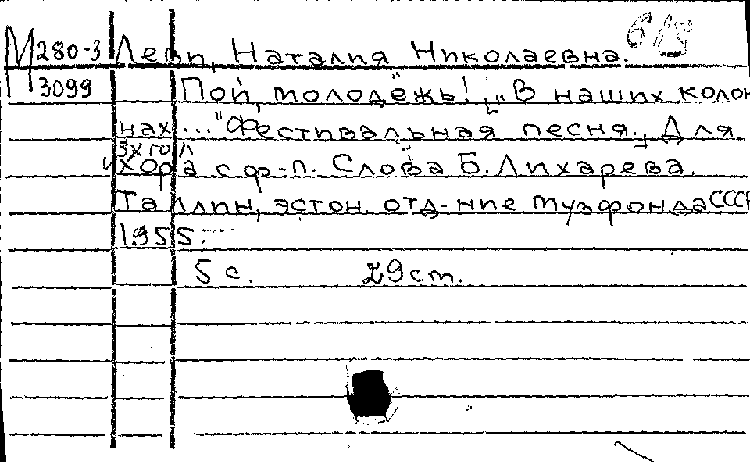 М 280-3 Леви, Наталия Николаевна.
3099 Пой, молодёжь! „В наших колон
нах..." [Фестивальная песня.] Для
3хгол
хора с ф-п. Слова Б. Лихарева.
Таллин, эстон. отд-ние Музфонда СССР
1955.
5 с. 29 ст.